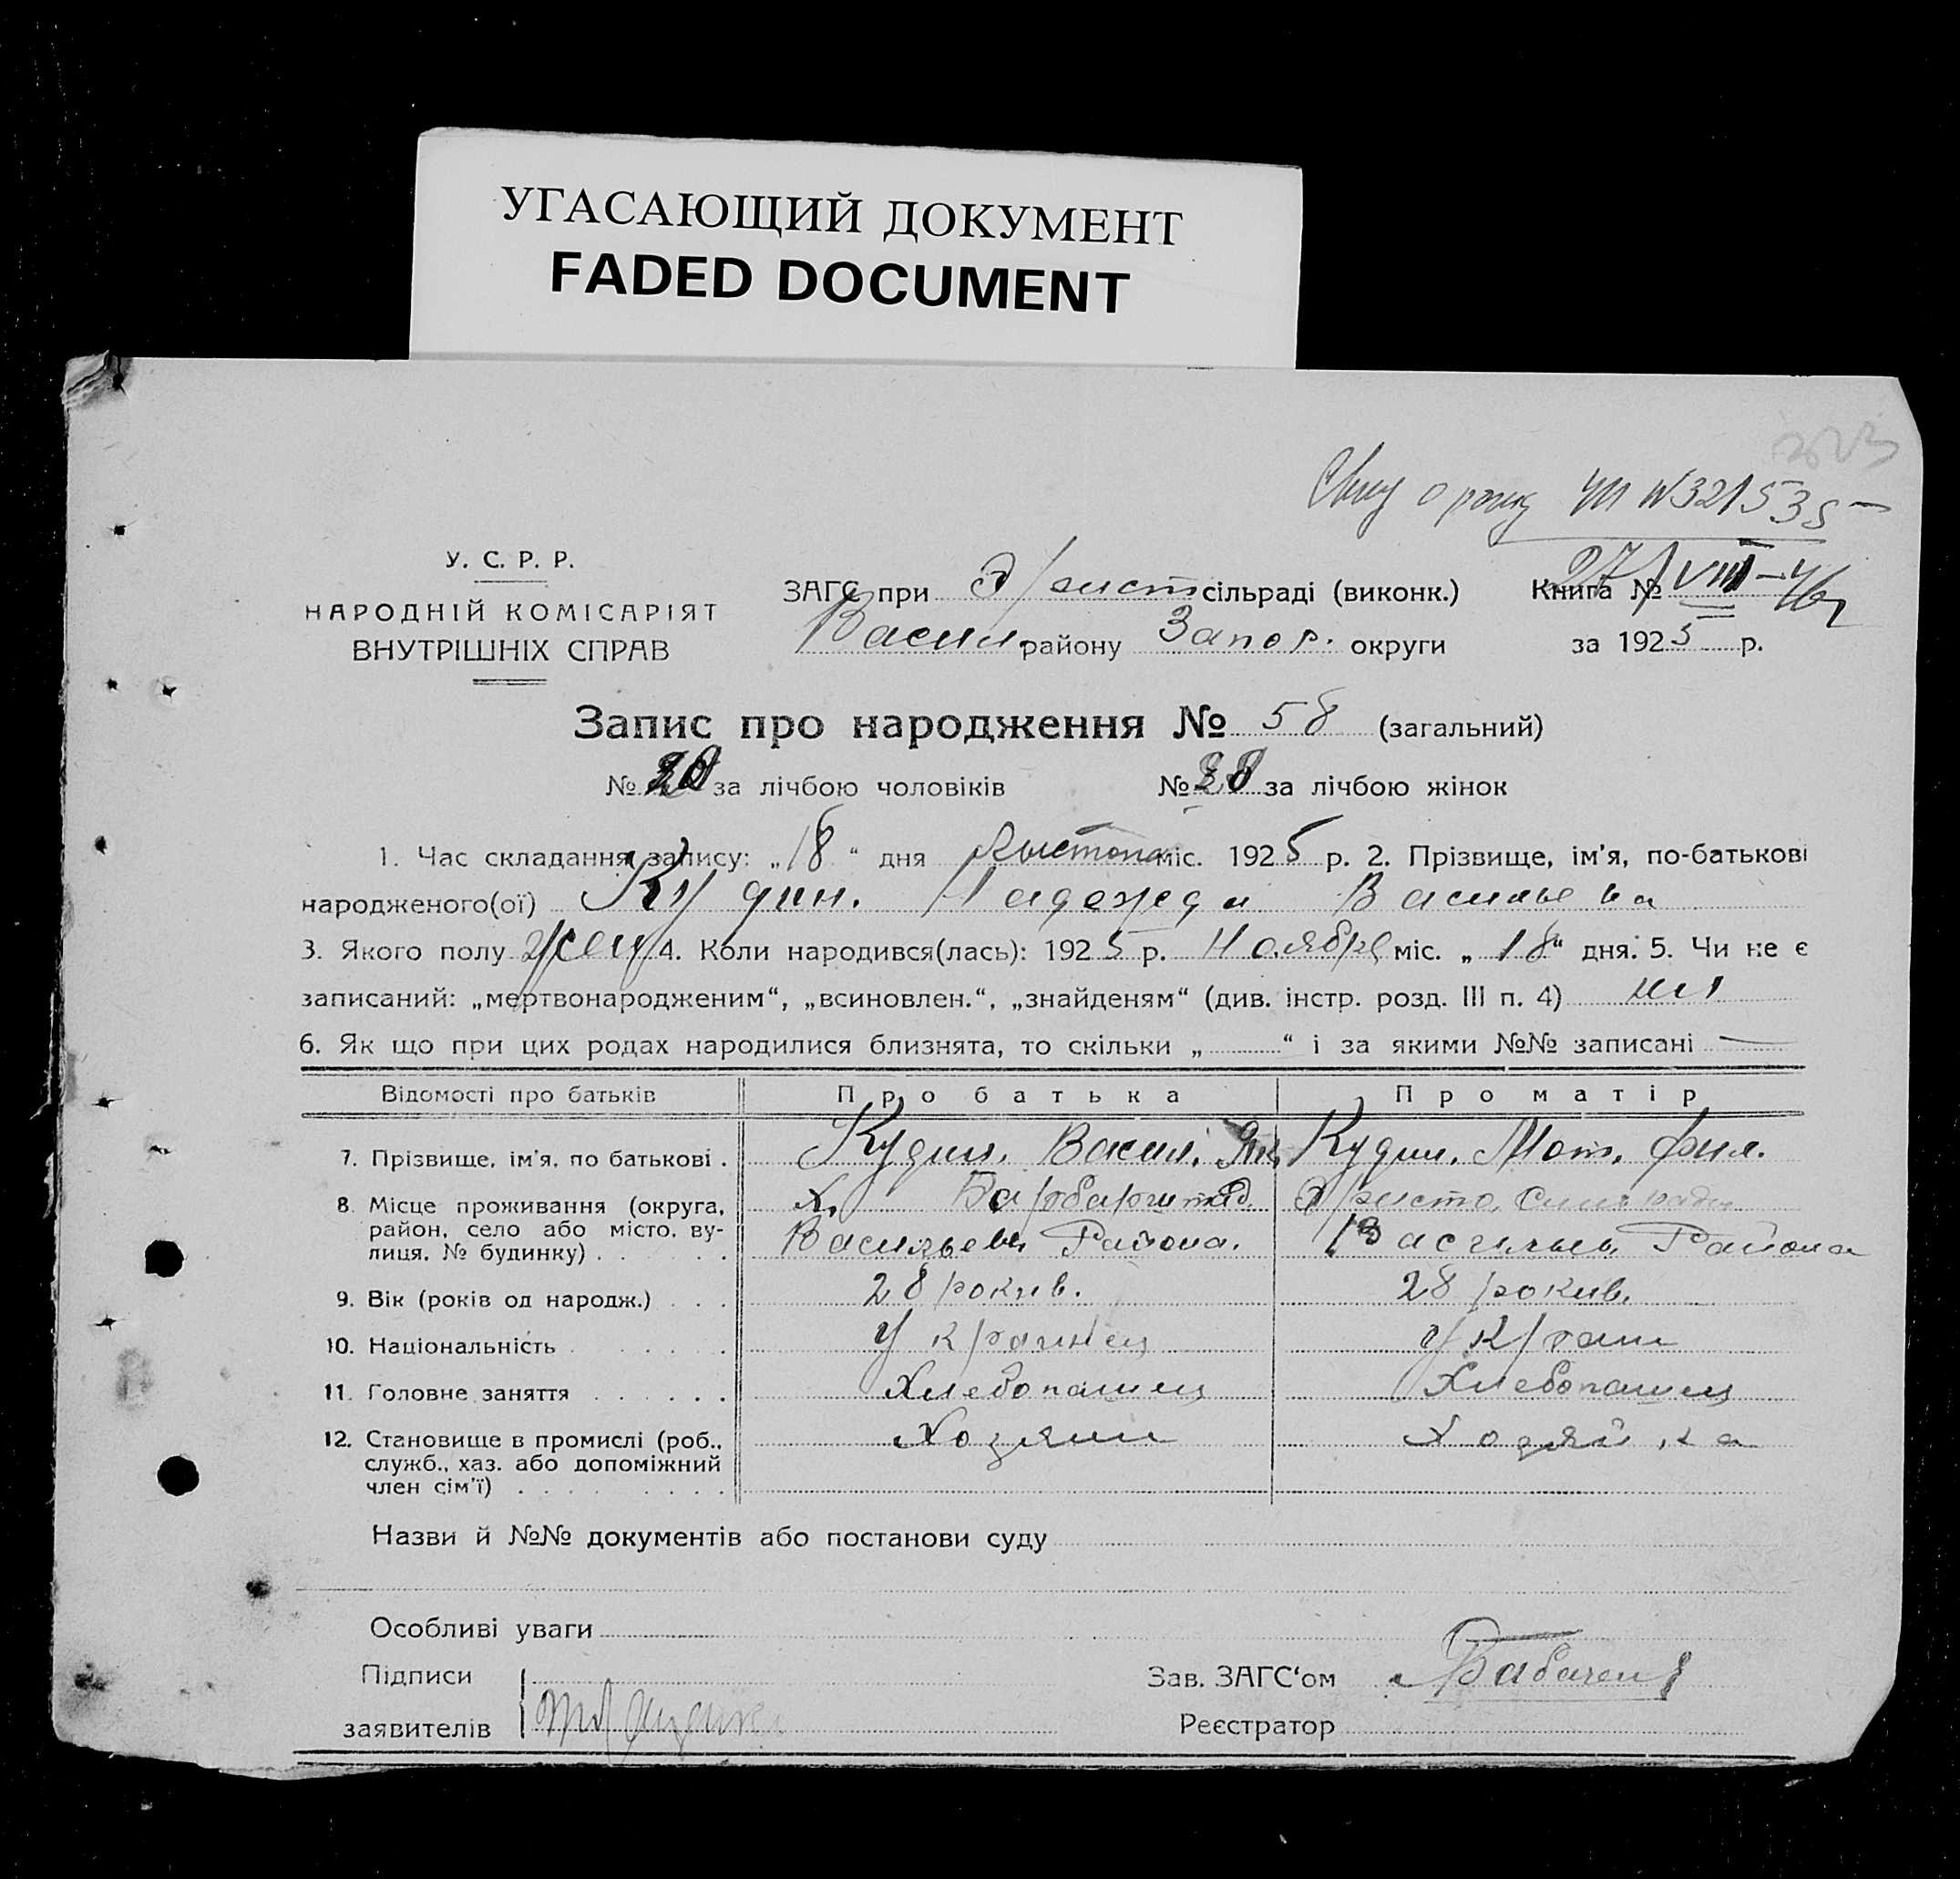 УГАСАЮЩИЙ ДОКУМЕНТ
FADED DOCUMENT
№ 321535
27/VIII–46
У. С. Р. Р.
НАРОДНІЙ КОМІСАРІЯТ
ВНУТРІШНІХ СПРАВ
ЗАГС при сільраді (виконк.) Книга №
Васил. району Запор. округи за 1925 р.
Запис про народження № 58 (загальний)
№ за лічбою чоловіків № за лічбою жінок
1. Час складання запису: „18“ дня Листопа міс. 1925 р. 2. Прізвище, ім'я, по-батькові
народженого(ої) Кудин. Надежда Васильевна
3. Якого полу жен 4. Коли народився(лась): 1925 р. Ноября міс. „18“ дня. 5. Чи не є
записаний: „мертвонародженим“, „всиновлен.“, „знайденям“ (див. інстр. розд. III п. 4) ни
6. Як що при цих родах народилися близнята, то скільки „ “ і за якими №№ записані —
Відомості про батьків Про батька Про матір
7. Прізвище, ім'я, по батькові . Кудин. Васил. Як. Кудин. Мот. Фил.
8. Місце проживання (округа, район, село або місто, вулиця, № будинку) . . . х. Васильев. Района. Васильев. Района
9. Вік (років од народж.) . . . 28 рокив. 28 рокив.
10. Національність . . . . . . Украинец Украин
11. Головне заняття . . . . . . Хлебопашец Хлебопашец
12. Становище в промислі (роб., служб., хаз. або допоміжний член сім'ї) . . . . . . . . . Хозяин Хозяйка
Назви й №№ документів або постанови суду
Особливі уваги
Підписи
заявителів
Зав. ЗАГС'ом
Реєстратор